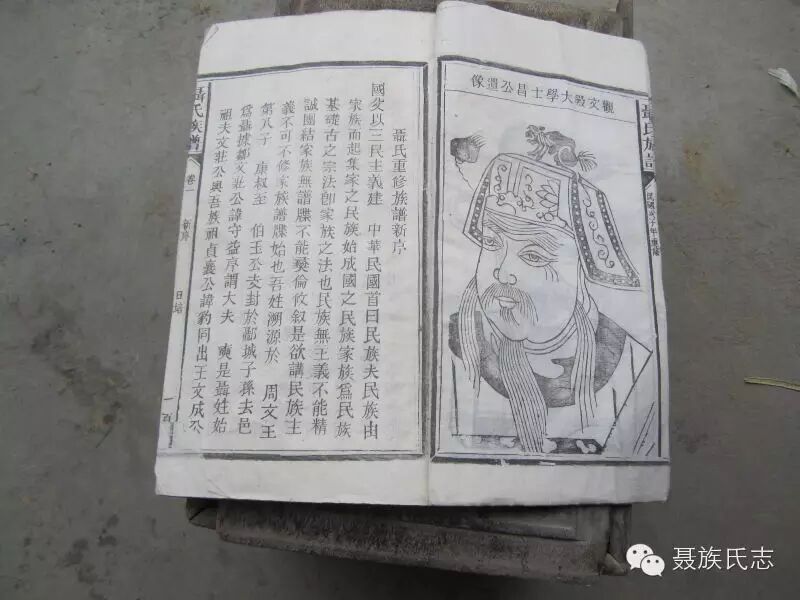 觀文殿大學士昌公遺像
聶氏族譜
聶氏重修族譜新序
國父以三民主義建 中華民國首曰民族夫民族由
家族而起集家之民族始成國之民族家族爲民族
基礎古之宗法卽家族之法也民族無主義不能精
誠團結家族無譜牒不能彜倫攸敘是欲講民族主
義不可不修家族譜牒始也吾姓溯源於 周文王
第八子 康叔至 伯玉公支封於城子孫去邑
爲聶據鄒文莊公諱守益序謂大夫 奭是聶姓始
祖夫文莊公與吾族祖貞襄公諱豹同出王文成公
聶氏族譜 卷一 新序
聂族氏志